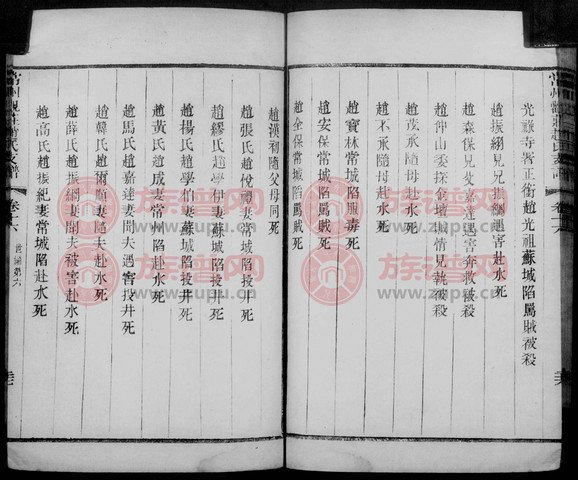 光祿寺署正銜趙光祖蘇城陷罵賊被殺
趙振翎見兄振翮遇害赴水死
趙森保見父嘉達遇害奔救被殺
趙仲山委探金壇城情見執被殺
趙茂承隨母赴水死
趙不承隨母赴水死
趙寶林常城陷服毒死
趙安保常城陷罵賊死
趙全保常城陷罵賊死
趙漢初隨父母同死
趙張氏趙悅禮妻常城陷投井死
趙繆氏趙學伊妻蘇城陷投井死
趙楊氏趙學伯妻蘇城陷投井死
趙黃氏趙成妻常州陷赴水死
趙馬氏趙嘉達妻聞夫遇害投井死
趙韓氏趙爾順妻隨夫赴水死
趙薛氏趙振翮妻聞夫被害赴水死
趙高氏趙振紀妻常城陷赴水死
常州觀莊趙氏支譜
卷十六
族谱网
www.zupu.cn
族谱网
www.zupu.cn
族谱网
www.zupu.cn
族谱网
www.zupu.cn